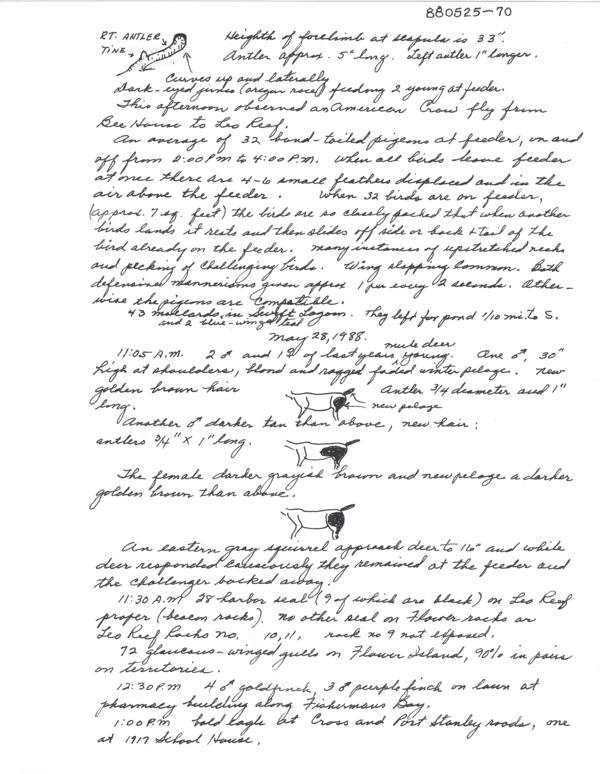 880525-70
RT. ANTLER Heighth of forelimb at scapula is 33".
TINE Antler approx. 5" long. Left antler 1" longer.
Curves up and laterally
Dark-eyed juncos (oregon race) feeding 2 young at feeder.
This afternoon observed an American Crow fly from
Bee House to Leo Reef.
An average of 32 band-tailed pigeons at feeder, on and
off from 2:00 PM to 4:00 P.M. When all birds leave feeder
at once there are 4-6 small feathers displaced and in the
air above the feeder. When 32 birds are on feeder,
(approx. 7 sq. feet) the birds are so closely packed that when another
birds lands it rests and then slides off side or back & tail of the
bird already on the feeder. Many instances of upstretched necks
and pecking of challenging birds. Wing slapping common. Both
defensive mannerisms given approx 1 per every 2 seconds. Other-
wise the pigeons are compatible.
43 mallards in Swift Lagoon. They left for pond 1/10 mi. to S.
and 2 blue-winged teal
May 28, 1988.
11:05 A.M. 2 ♂ and 1 ♀ of last years young. mule deer One ♂, 30"
high at shoulders, blond and ragged faded winter pelage. New
golden brown hair Antler 3/4 diameter and 1"
long. new pelage
Another ♂ darker tan than above, new hair;
antlers 3/4" X 1" long.
The female darker grayish brown and new pelage a darker
golden brown than above.
An eastern gray squirrel approach deer to 16" and while
deer responded cautiously they remained at the feeder and
the challenger backed away.
11:30 A.M. 28 harbor seal (9 of which are black) on Leo Reef
proper (beacon rocks). No other seal on Flower rocks or
Leo Reef Rocks no. 10, 11, rock no 9 not exposed.
72 glaucous-winged gulls on Flower Island, 90% in pairs
on territories.
12:30 P.M 4 ♂ goldfinch, 3 ♂ purple finch on lawn at
pharmacy building along Fishermans Bay.
1:00 P.M. bald eagle at Cross and Port Stanley roads, one
at 1917 School House.